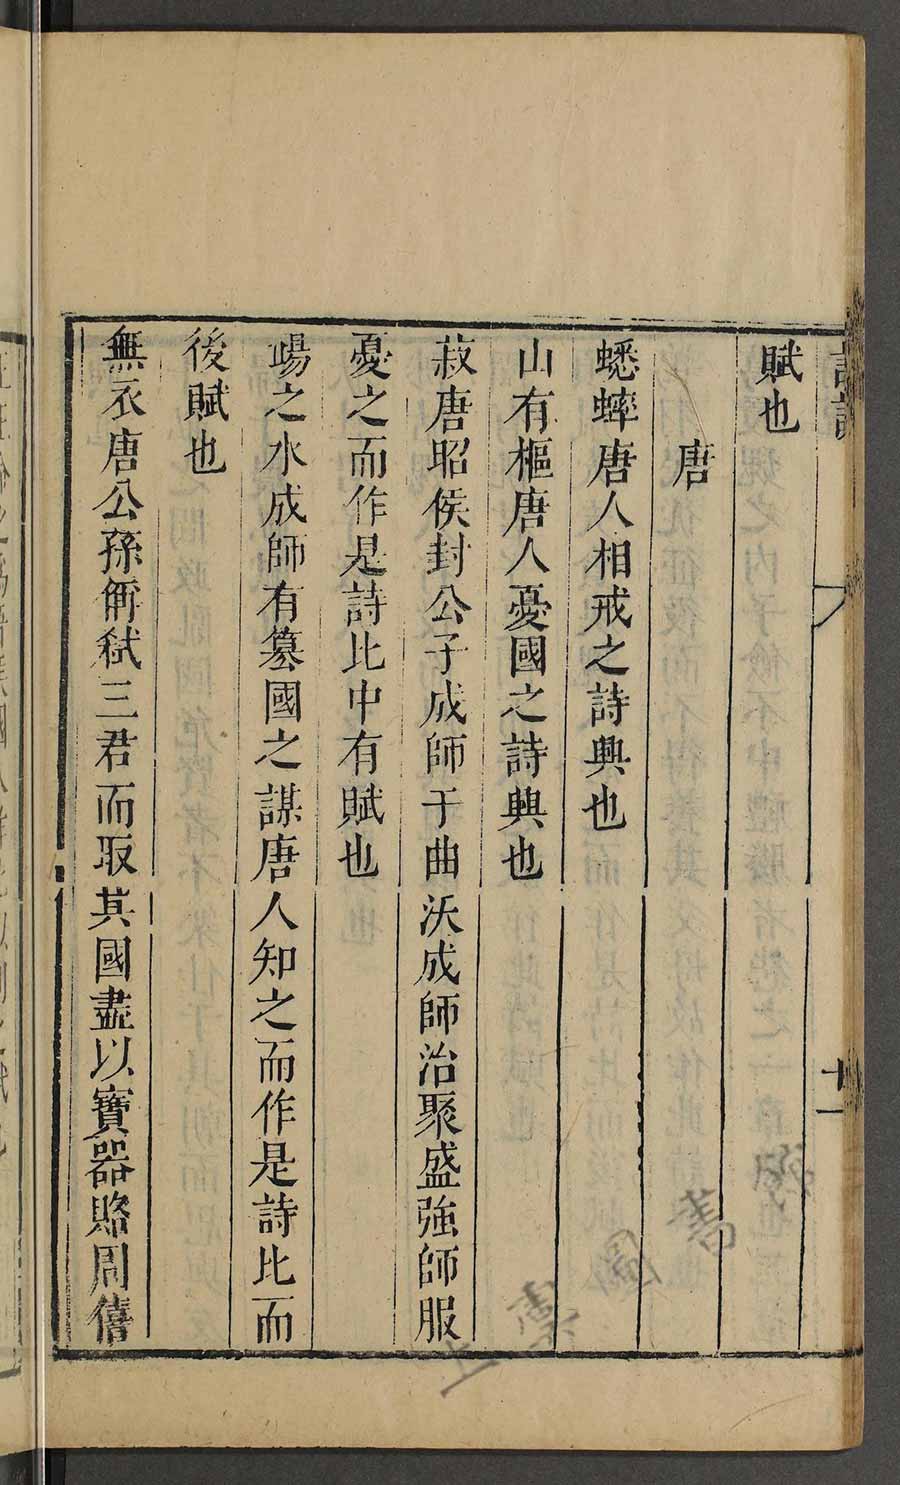 賦也
唐
蟋蟀唐人相戒之詩興也
山有樞唐人憂國之詩興也
菽唐昭侯封公子成師于曲沃成師治聚盛強師服
憂之而作是詩比中有賦也
之水成師有篡國之謀唐人知之而作是詩比而
後賦也
無衣唐公孫偁弑三君而取其國盡以寶器賂周僖
十一